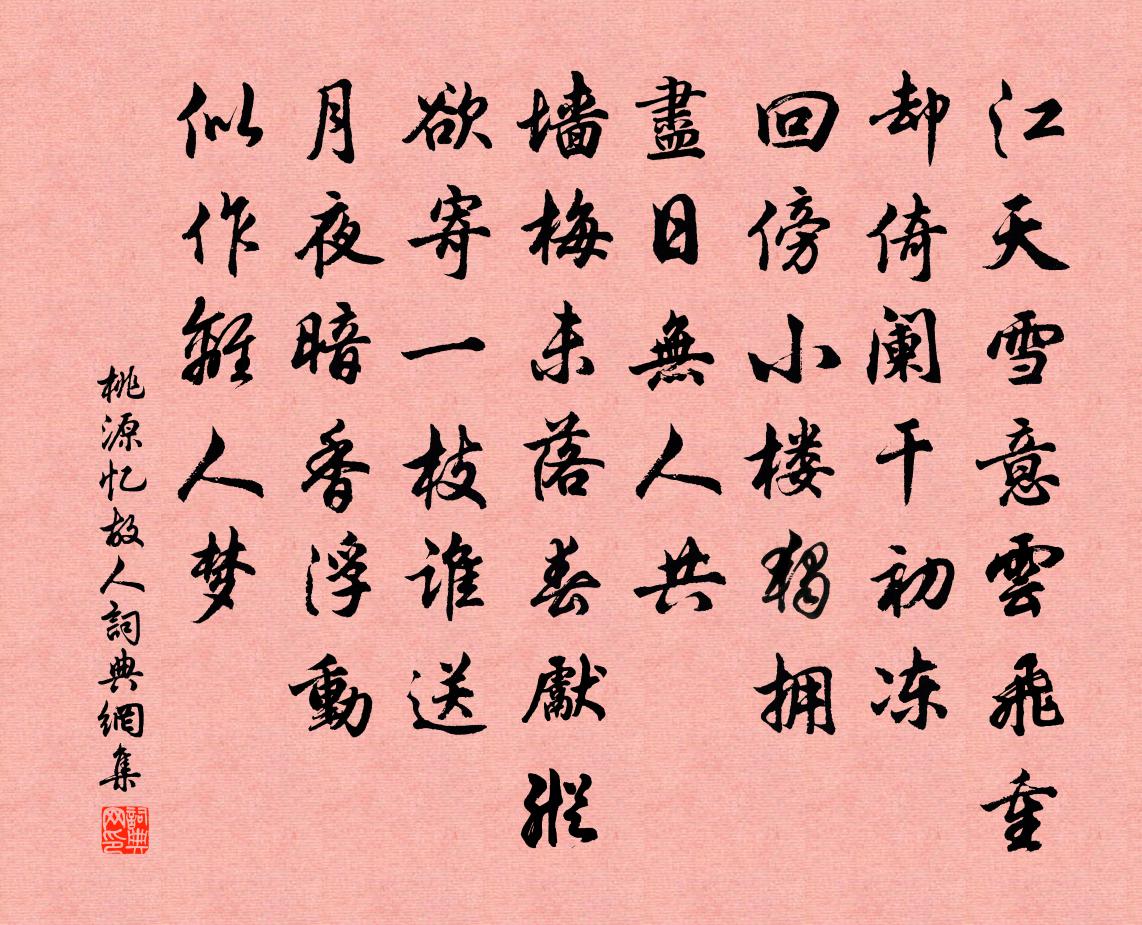 江天雪意雲飛重
却倚阑干初冻
回傍小楼獨拥
盡日無人共
墙梅未落春獻縱
欲寄一枝谁送
月夜暗香浮動
似作離人梦
桃源忆故人詞典網集
詞典网印